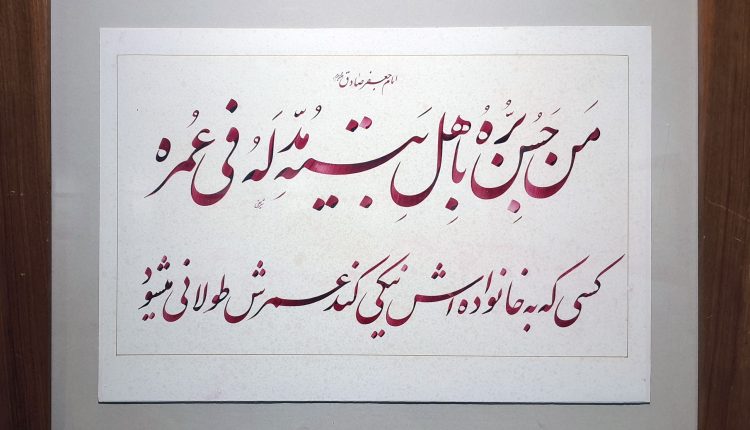 امام جعفر صادق
مَن حَسُنَ بِرُّهُ بِاَهلِ بَیتِهِ مُدَّ لَهُ فی عُمُره
کسی که به خانواده اش نیکی کند عمرش طولانی میشود